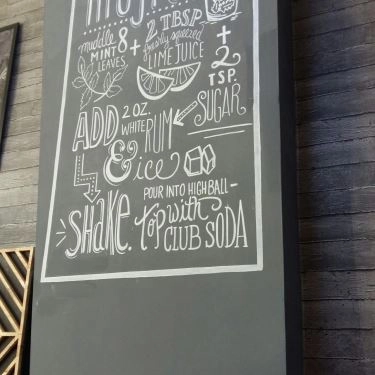 muddle 8 + 2 TBSP.
MINT LEAVES
freshly squeezed
LIME JUICE
+ 2 TSP. SUGAR
ADD 2 OZ. WHITE RUM
& ice
SHAKE.
POUR INTO HIGHBALL-
top with
CLUB SODA